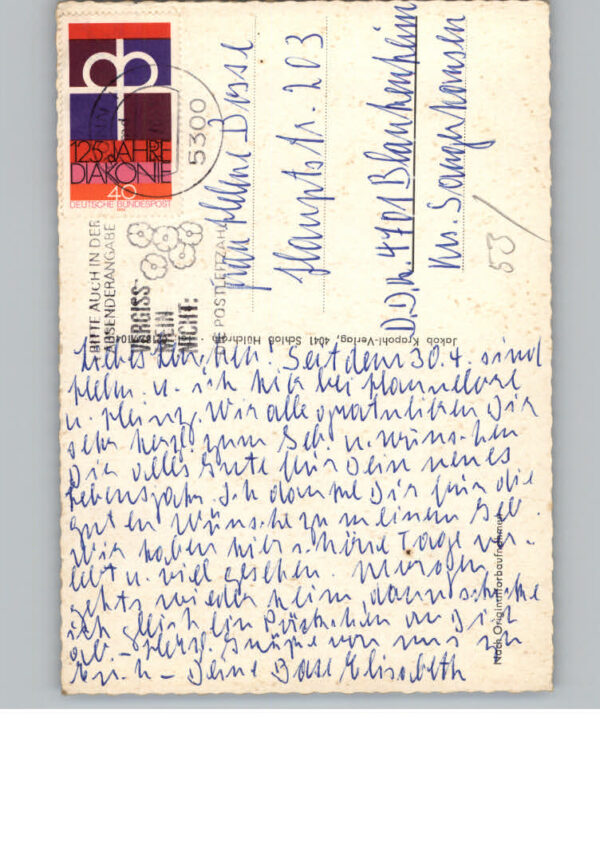 125 JAHRE
DIAKONIE
40
DEUTSCHE BUNDESPOST
5300
BITTE AUCH IN DER
ABSENDERANGABE
VERGISS-
MEIN
NICHT:
DIE POSTLEITZAHL
Frau Helene Bosse
Hauptstr. 203
DDR. 4701 Blankenheim
Krs. Sangerhausen
53/
Jakob Krapohl-Verlag, 4041 Schloß Hülchrath
Nach Originalfarbaufnahmen
Liebes Lenchen! Seit dem 30.4. sind
Helm. u. ich hier bei Hannelore
u. Heinz. Wir alle gratulieren Dir
sehr herzl. zum Geb. u. wünschen
Dir alles Gute für Dein neues
Lebensjahr. Ich danke Dir für die
guten Wünsche zu meinem Geb.
Wir haben hier schöne Tage ver-
lebt u. viel gesehen. Morgen
gehts wieder heim dann schicke
ich gleich ein Päckchen an Dich
ab. - Herzl. Grüße von uns an
Euch - Deine Base Elisabeth